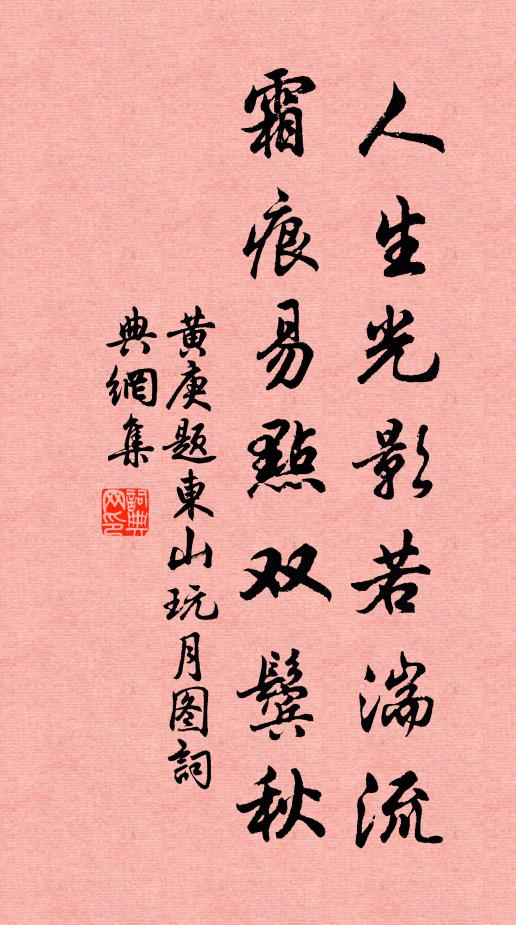 人生光影若湍流
霜痕易點双鬓秋
黄庚题東山玩月图詞
典網集
詞典
网印